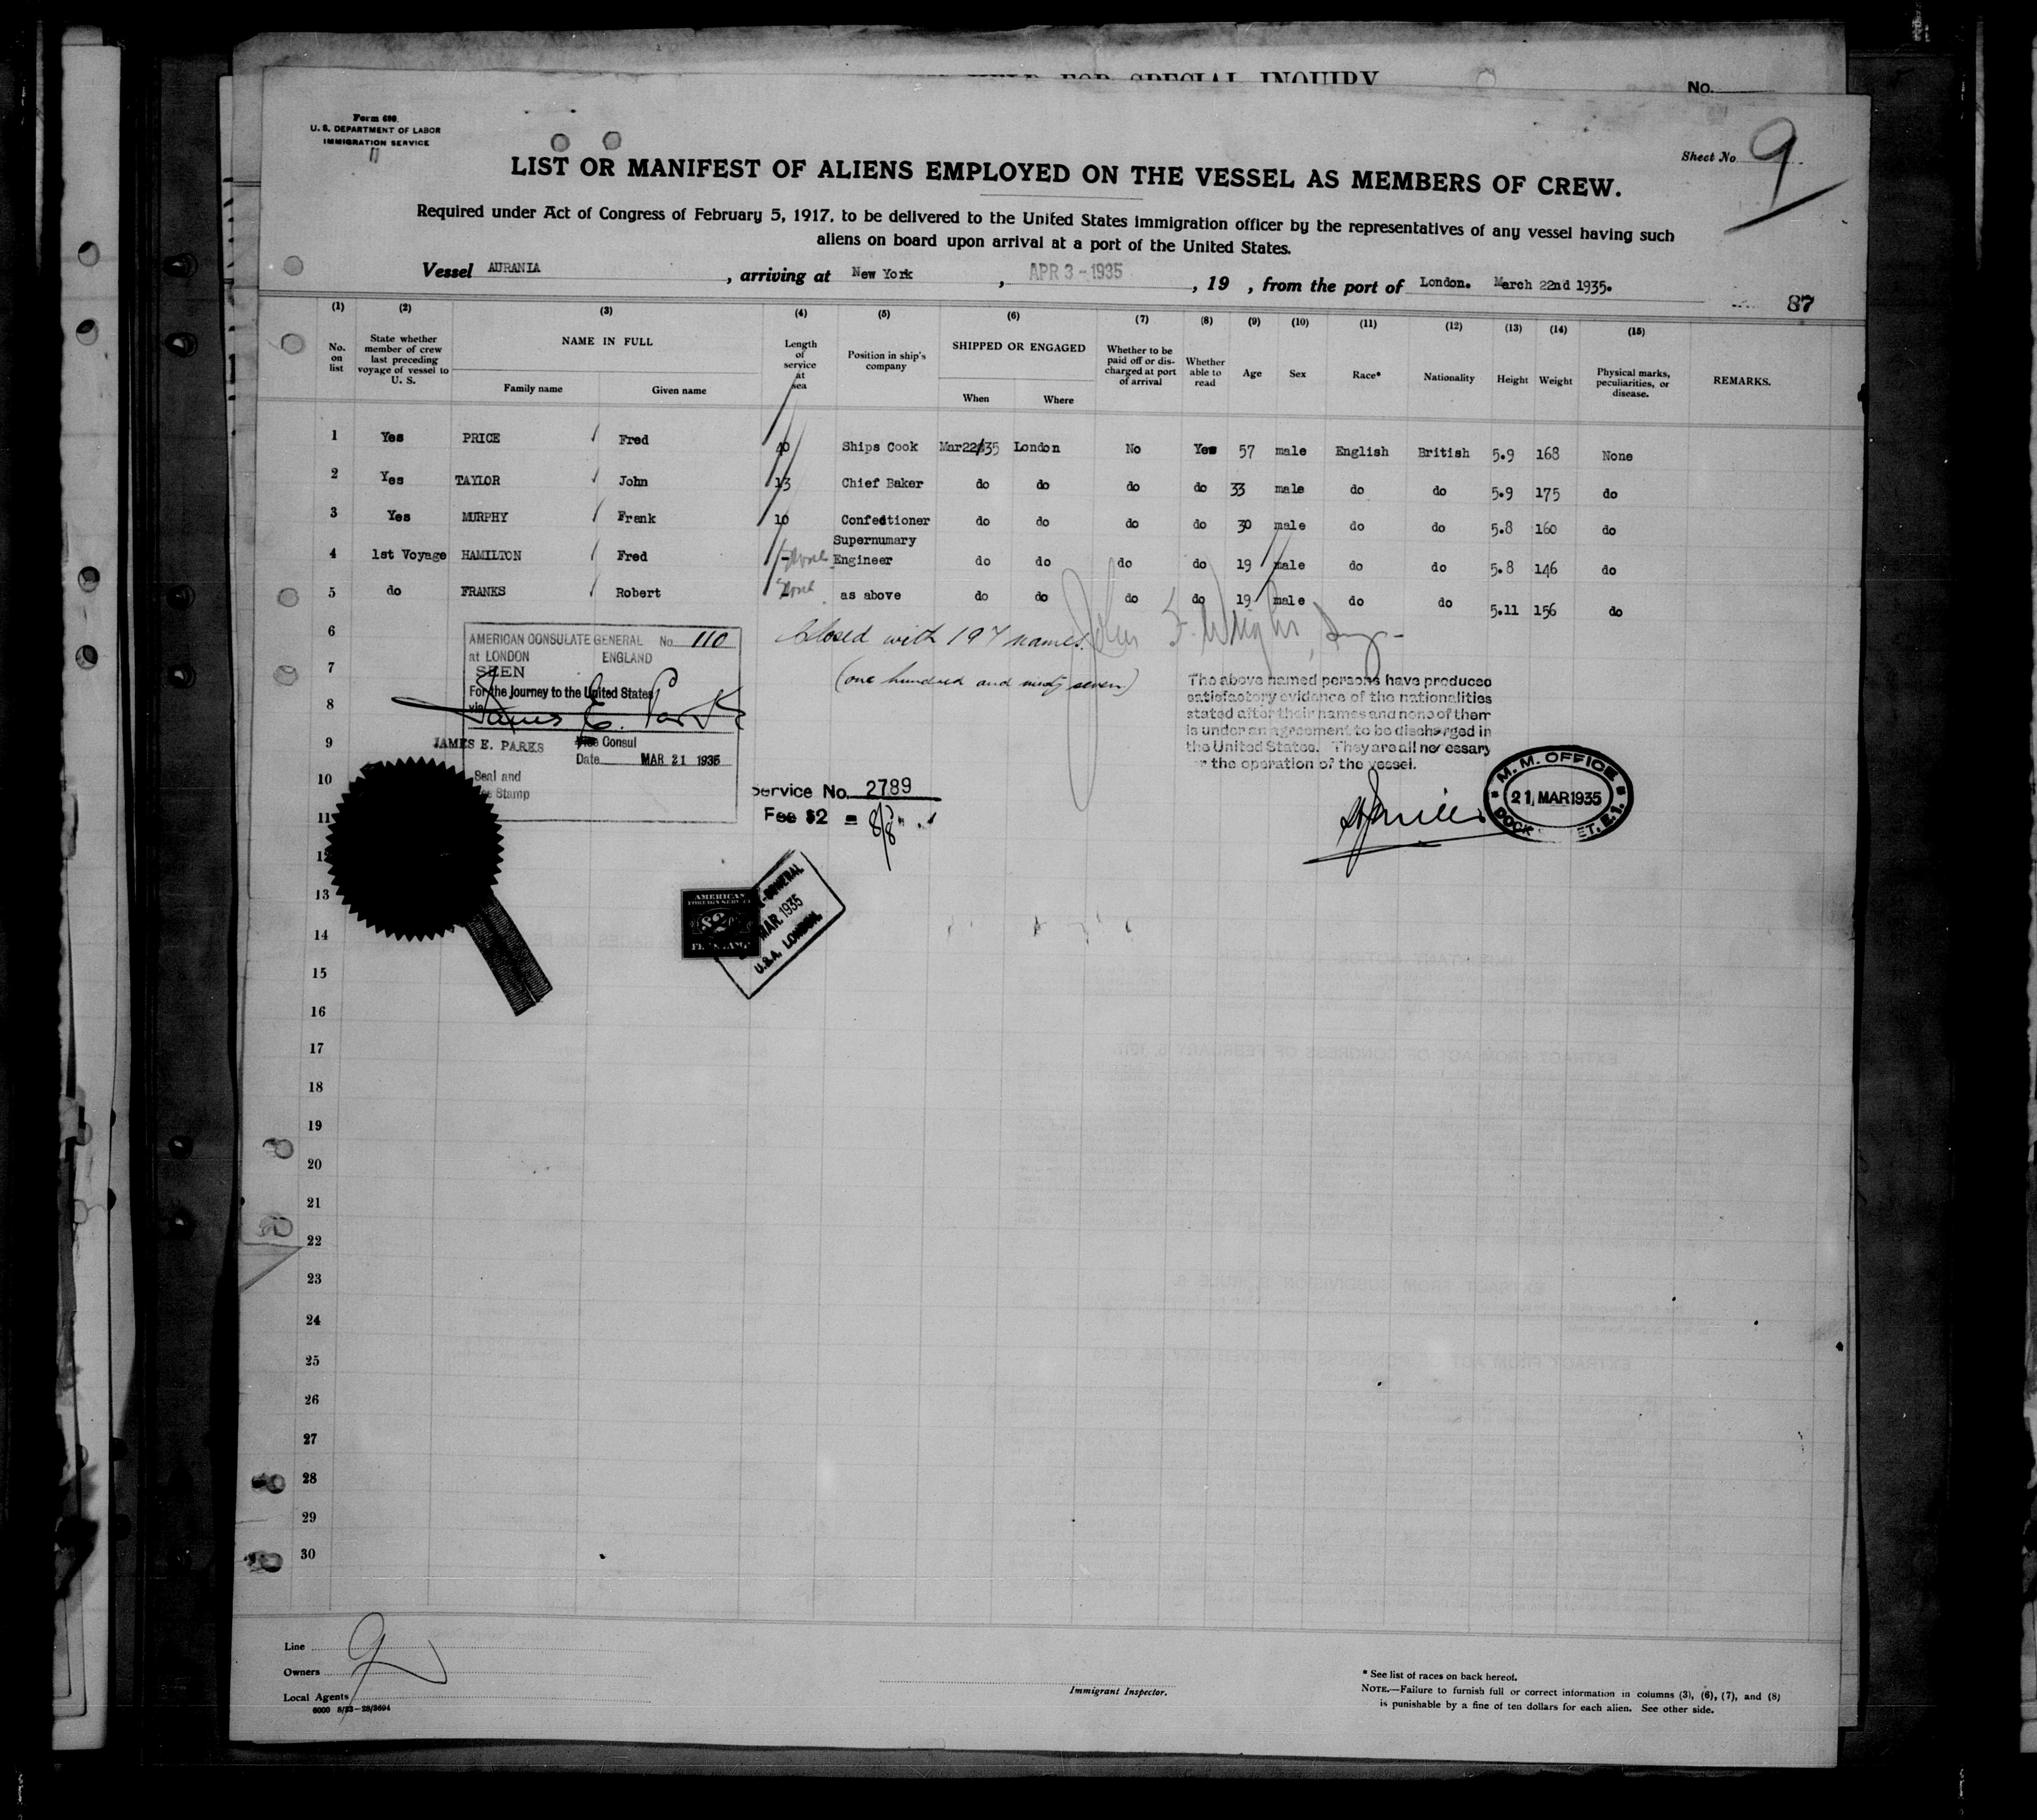 FOR SPECIAL INQUIRY
No.
Form 680.
U. S. DEPARTMENT OF LABOR
IMMIGRATION SERVICE
Sheet No 9
LIST OR MANIFEST OF ALIENS EMPLOYED ON THE VESSEL AS MEMBERS OF CREW.
Required under Act of Congress of February 5, 1917, to be delivered to the United States immigration officer by the representatives of any vessel having such
aliens on board upon arrival at a port of the United States.
Vessel AURANIA, arriving at New York, APR 3 - 1935, 19 , from the port of London. March 22nd 1935.
87
(1) (2) (3) (4) (5) (6) (7) (8) (9) (10) (11) (12) (13) (14) (15)
No. on list
State whether member of crew last preceding voyage of vessel to U. S.
NAME IN FULL
Family name Given name
Length of service at sea
Position in ship's company
SHIPPED OR ENGAGED
When Where
Whether to be paid off or discharged at port of arrival
Whether able to read
Age Sex Race* Nationality Height Weight
Physical marks, peculiarities, or disease.
REMARKS.
1 Yes PRICE Fred 40 Ships Cook Mar22/35 London No Yes 57 male English British 5.9 168 None
2 Yes TAYLOR John 13 Chief Baker do do do do 33 male do do 5.9 175 do
3 Yes MURPHY Frank 10 Confedtioner do do do do 30 male do do 5.8 160 do
Supernumary
4 1st Voyage HAMILTON Fred - None Engineer do do do do 19 male do do 5.8 146 do
5 do FRANKS Robert None as above do do do do 19 male do do 5.11 156 do
6
7
8
9
10
11
12
13
14
15
16
17
18
19
20
21
22
23
24
25
26
27
28
29
30
Closed with 197 names.
(one hundred and ninety seven)
John F. Wright
AMERICAN CONSULATE GENERAL No 110
at LONDON ENGLAND
SEEN
For the Journey to the United States
via
James E. Parks
JAMES E. PARKS Vice Consul
Date MAR 21 1935
Seal and
Fee Stamp
Service No. 2789
Fee $2 = 8/8
The above named persons have produced
satisfactory evidence of the nationalities
stated after their names and none of them
is under an agreement to be discharged in
the United States. They are all necessary
for the operation of the vessel.
M. M. OFFICE
21 MAR 1935
DOCK ET. E.1.
AMERICAN
FOREIGN SERVICE
$2
FEE STAMP
GENERAL
MAR. 1935
U.S.A. LONDON.
Line
Owners
Local Agents
6000 8/33-28/3694
Immigrant Inspector.
* See list of races on back hereof.
NOTE.—Failure to furnish full or correct information in columns (3), (6), (7), and (8)
is punishable by a fine of ten dollars for each alien. See other side.